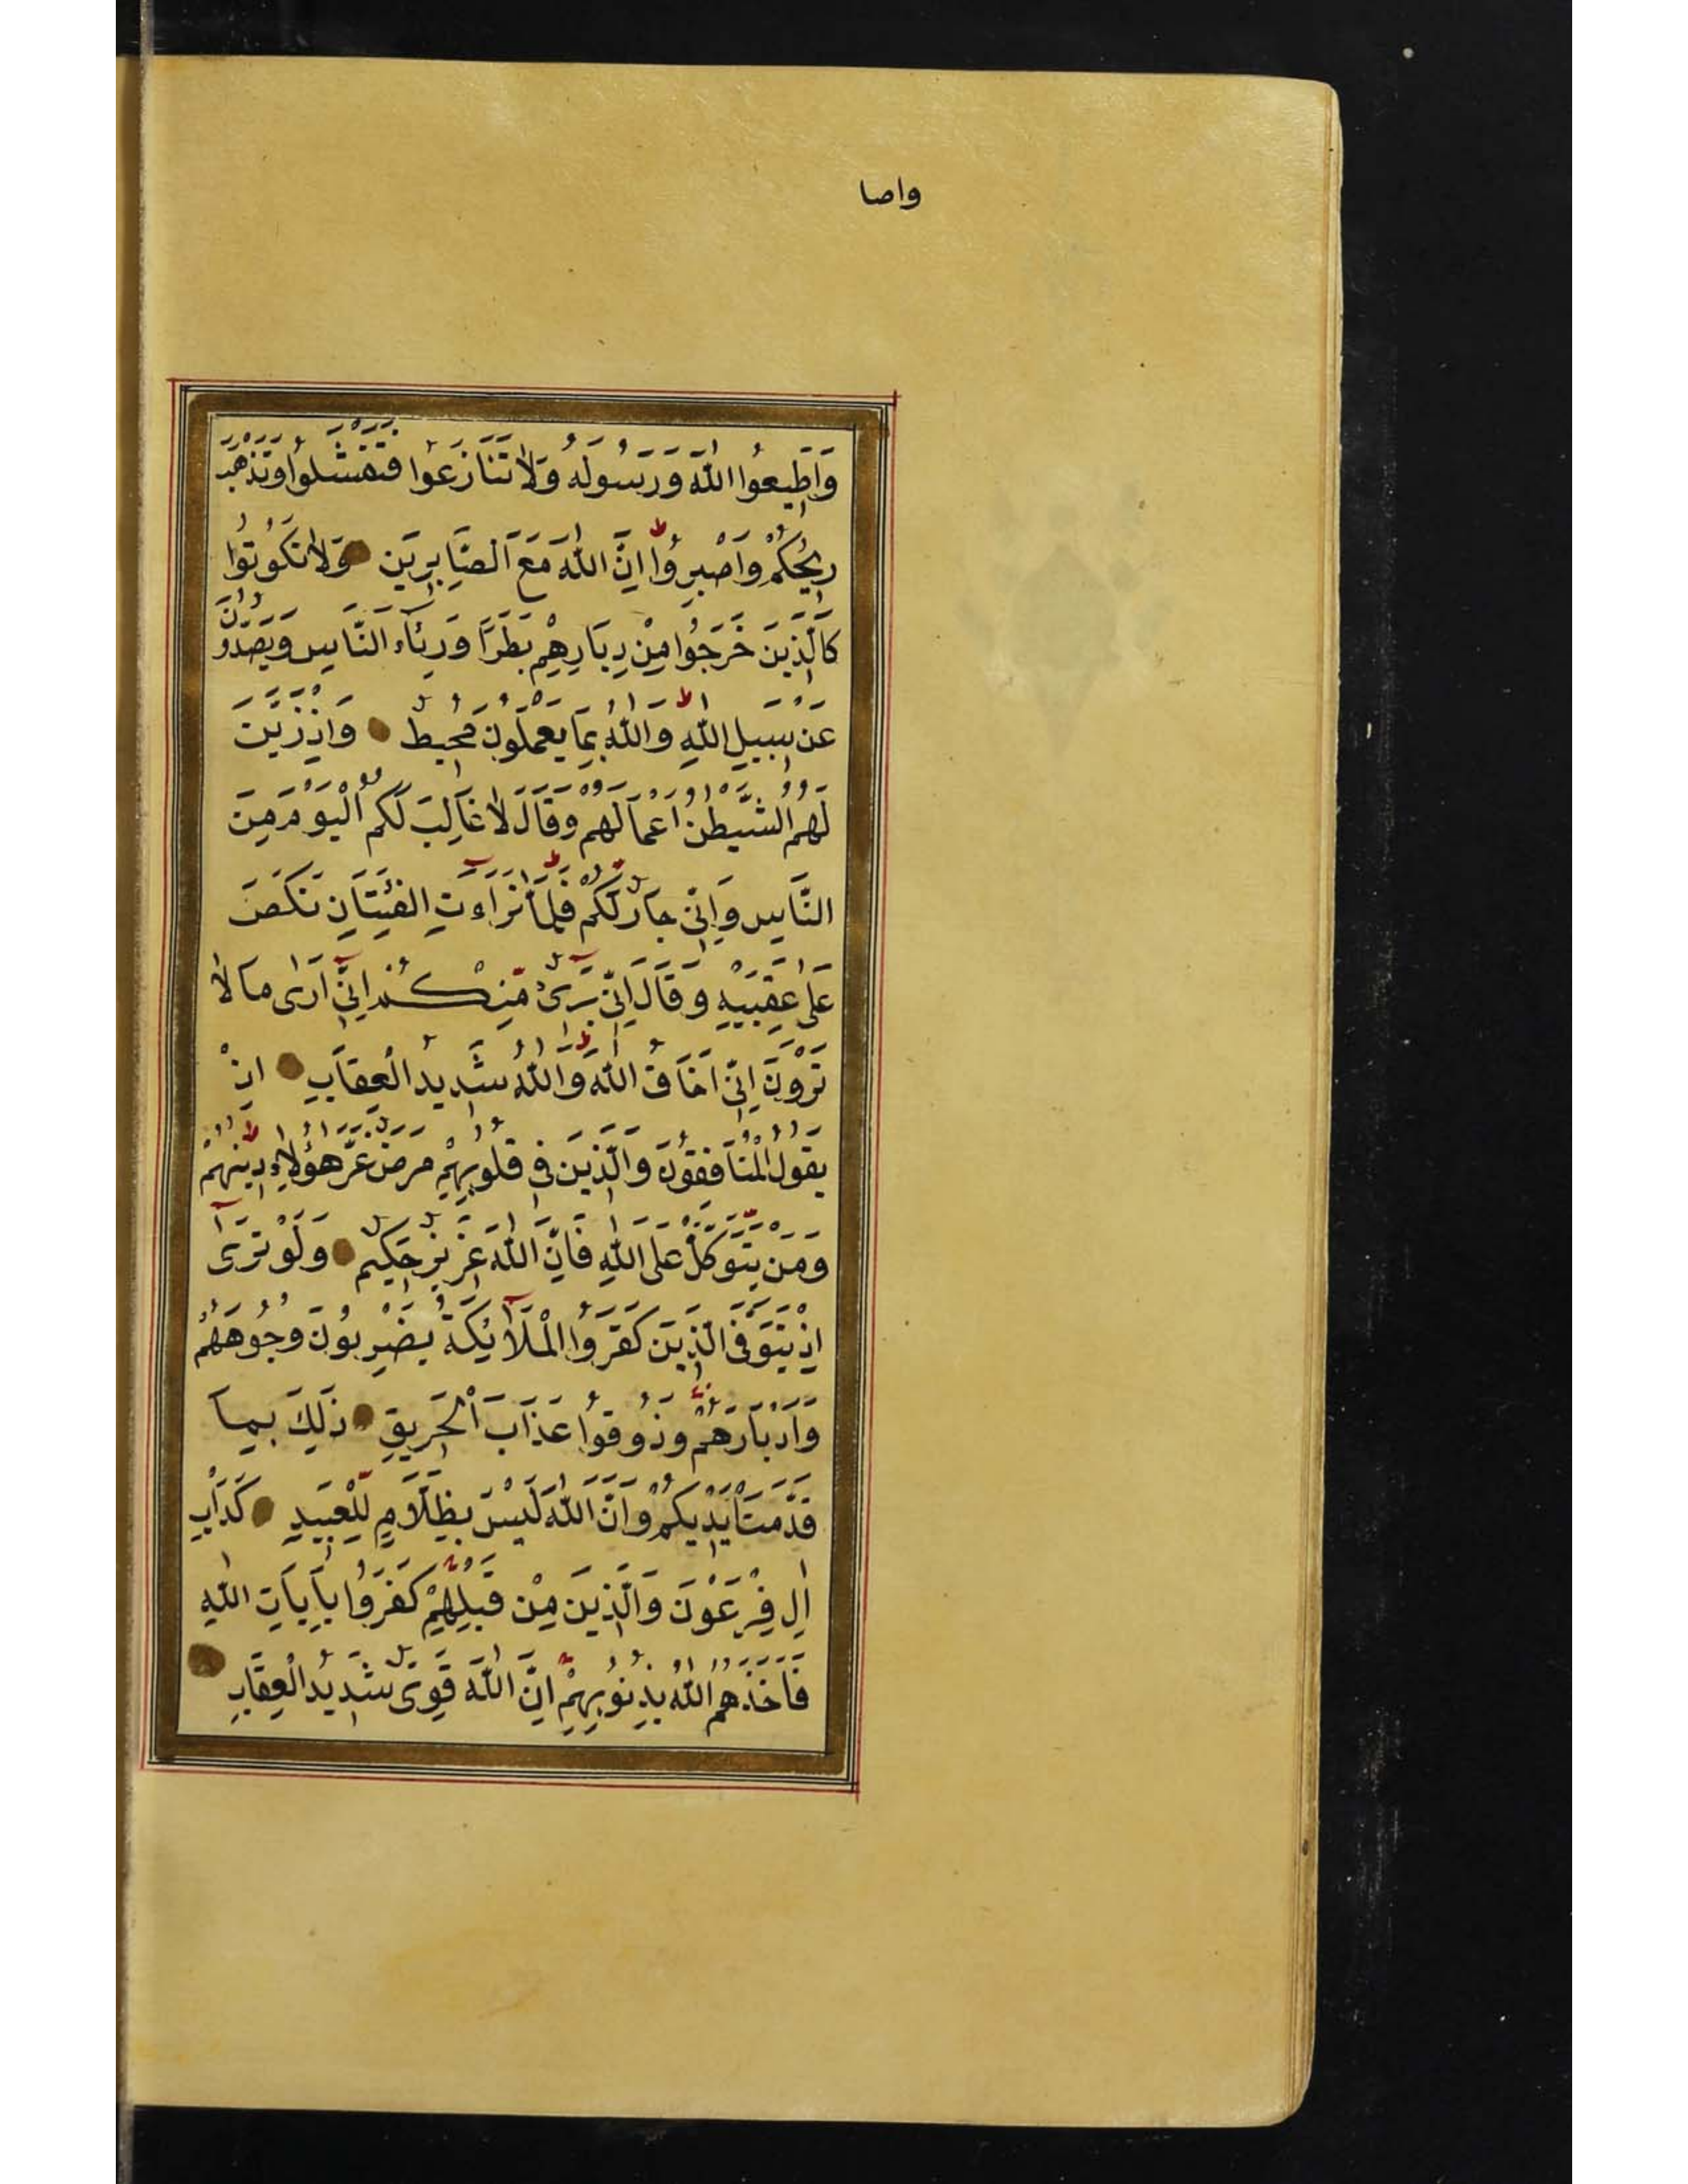 واصا
وَاَطِيعُوا اللّٰهَ وَرَسُولَهُ وَلَا تَنَازَعُوا فَتَفْشَلُوا وَتَذْهَبَ
رِيحُكُمْ وَاصْبِرُوا ط اِنَّ اللّٰهَ مَعَ الصَّابِرِينَ وَلَا تَكُونُوا
كَالَّذِينَ خَرَجُوا مِنْ دِيَارِهِمْ بَطَرًا وَرِئَاءَ النَّاسِ وَيَصُدُّونَ
عَنْ سَبِيلِ اللّٰهِ ط وَاللّٰهُ بِمَا يَعْمَلُونَ مُحِيطٌ وَاِذْ زَيَّنَ
لَهُمُ الشَّيْطٰنُ اَعْمَالَهُمْ وَقَالَ لَا غَالِبَ لَكُمُ الْيَوْمَ مِنَ
النَّاسِ وَاِنِّي جَارٌ لَكُمْ ط فَلَمَّا تَرَاءَتِ الْفِئَتَانِ نَكَصَ
عَلٰى عَقِبَيْهِ وَقَالَ اِنِّي بَرِيءٌ مِنْكُمْ اِنِّي اَرٰى مَا لَا
تَرَوْنَ اِنِّي اَخَافُ اللّٰهَ ط وَاللّٰهُ شَدِيدُ الْعِقَابِ اِذْ
يَقُولُ الْمُنَافِقُونَ وَالَّذِينَ فِي قُلُوبِهِمْ مَرَضٌ غَرَّ هٰؤُلَاءِ دِينُهُمْ ط
وَمَنْ يَتَوَكَّلْ عَلَى اللّٰهِ فَاِنَّ اللّٰهَ عَزِيزٌ حَكِيمٌ وَلَوْ تَرٰى
اِذْ يَتَوَفَّى الَّذِينَ كَفَرُوا الْمَلَآئِكَةُ يَضْرِبُونَ وُجُوهَهُمْ
وَاَدْبَارَهُمْ وَذُوقُوا عَذَابَ الْحَرِيقِ ذٰلِكَ بِمَا
قَدَّمَتْ اَيْدِيكُمْ وَاَنَّ اللّٰهَ لَيْسَ بِظَلَّامٍ لِلْعَبِيدِ كَدَاْبِ
اٰلِ فِرْعَوْنَ وَالَّذِينَ مِنْ قَبْلِهِمْ كَفَرُوا بِاٰيَاتِ اللّٰهِ
فَاَخَذَهُمُ اللّٰهُ بِذُنُوبِهِمْ اِنَّ اللّٰهَ قَوِيٌّ شَدِيدُ الْعِقَابِ